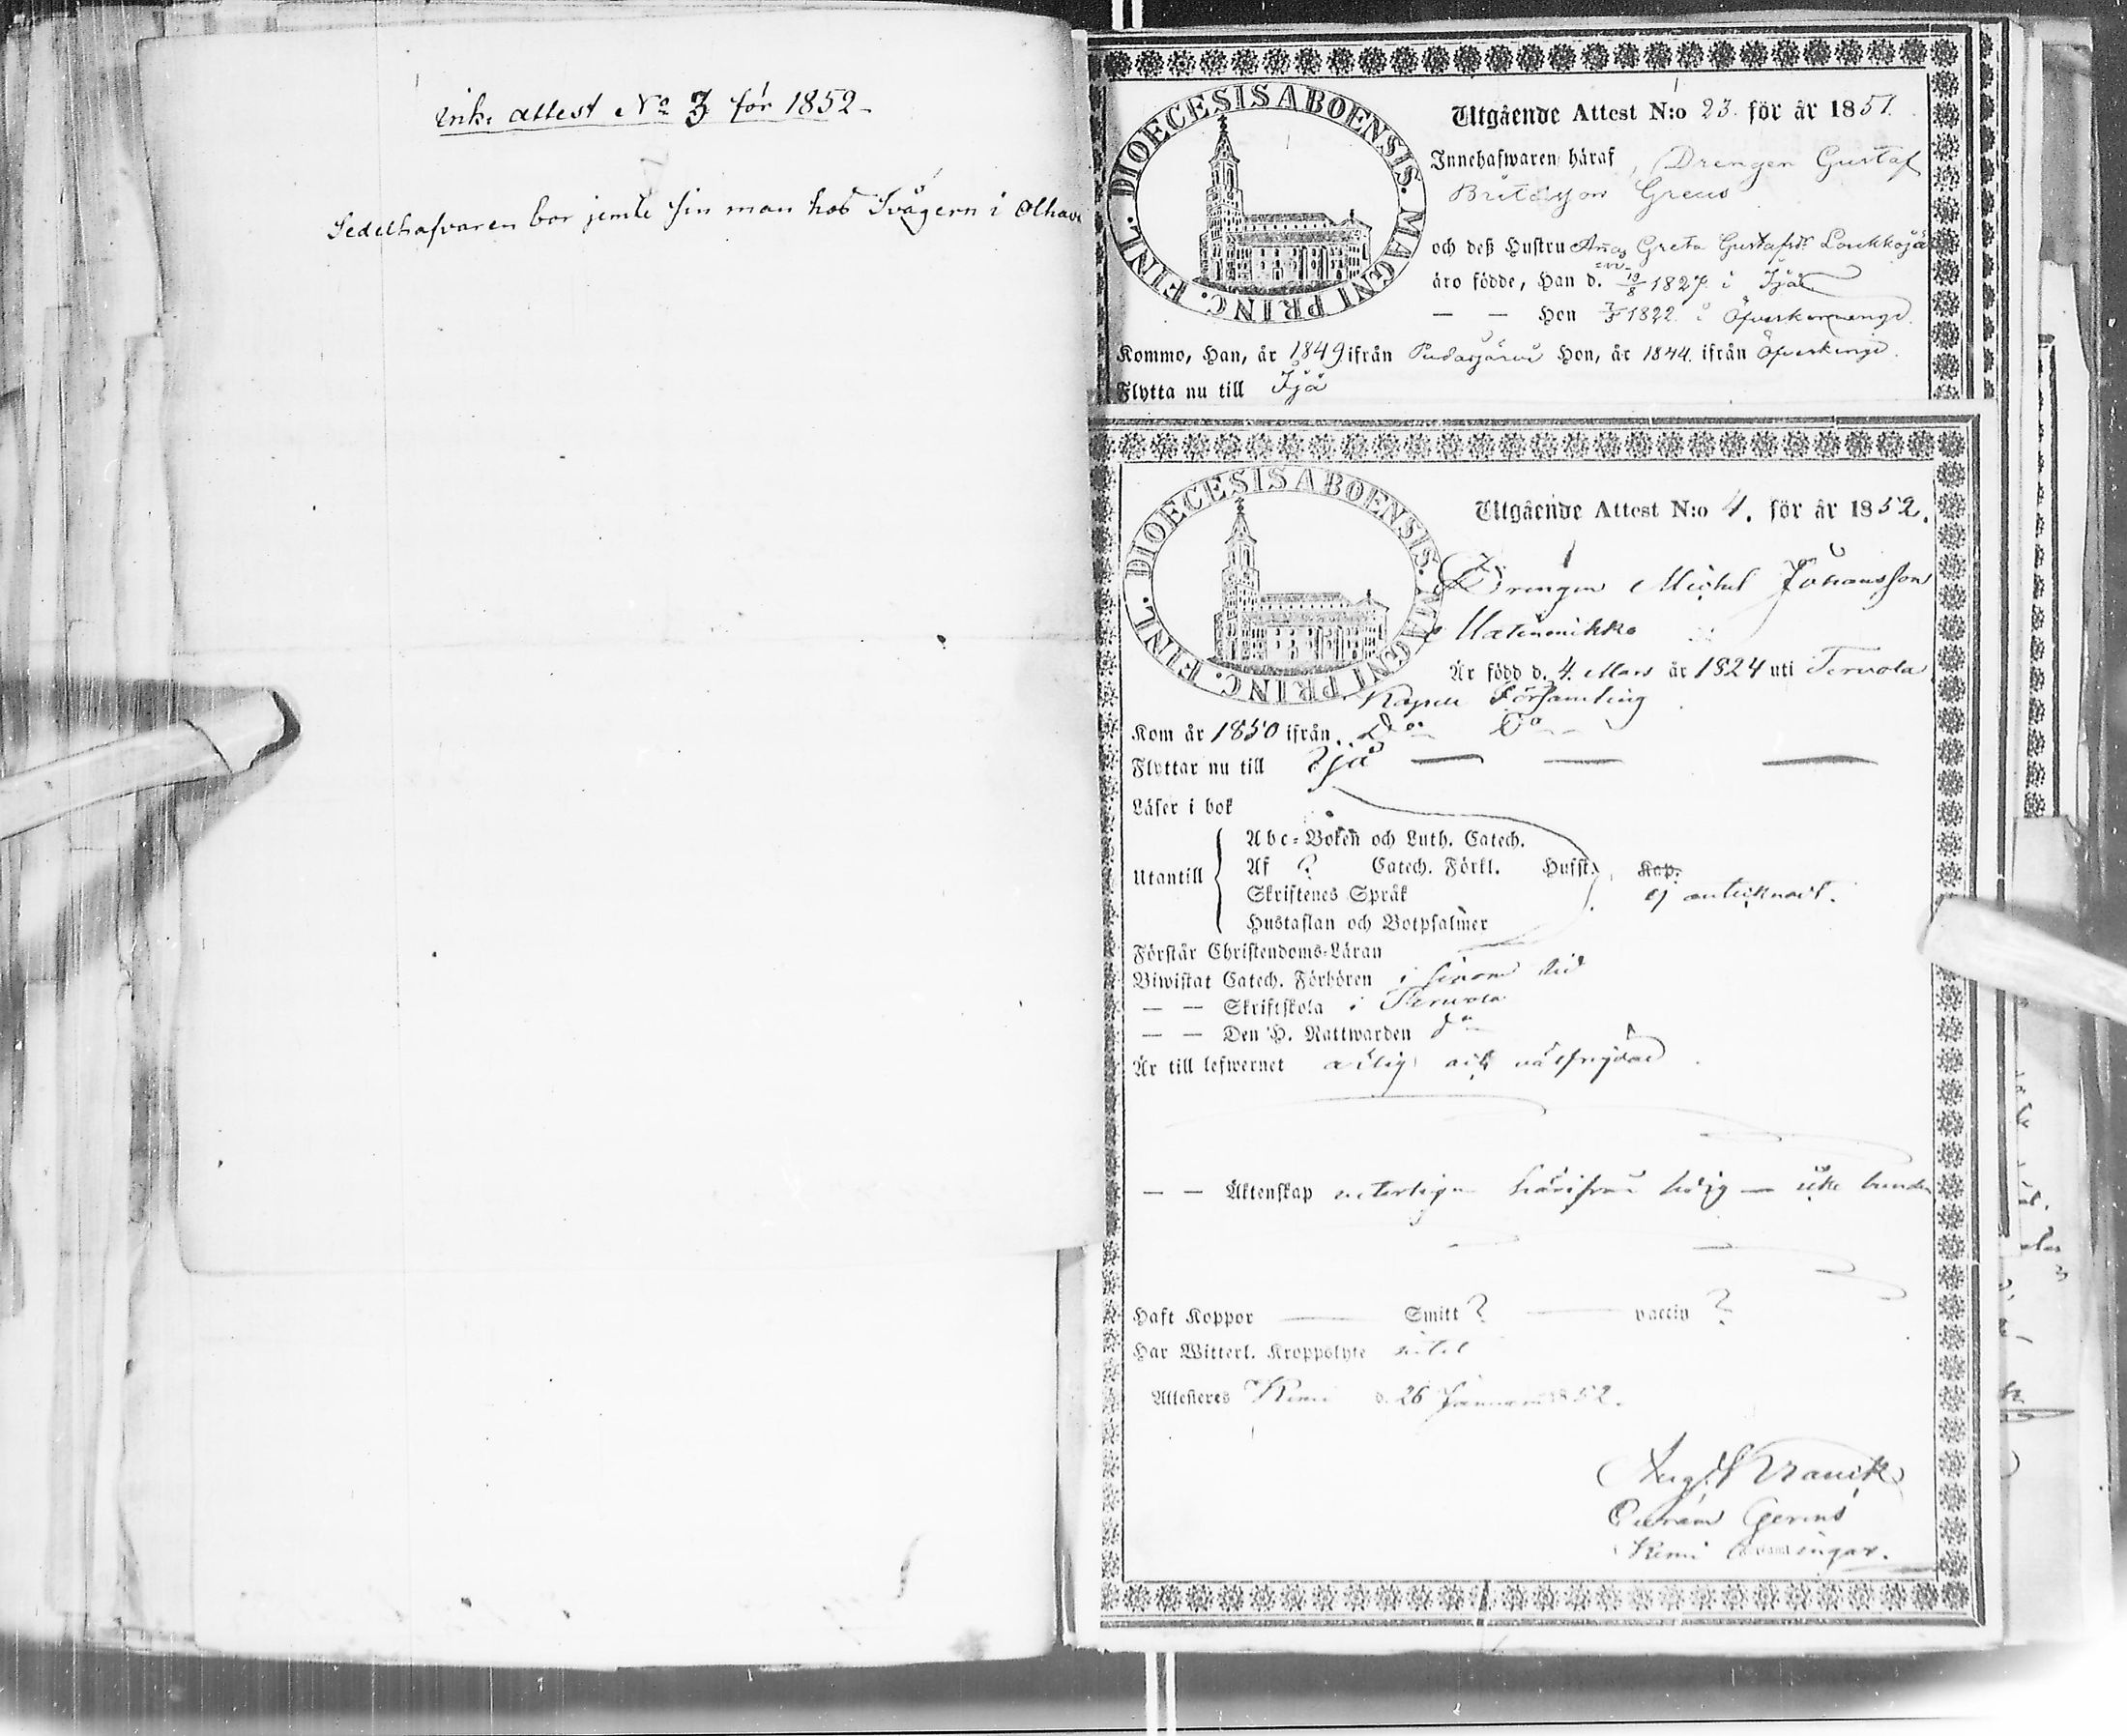 Ink. attest No 3 för 1852
Sedelhafvaren bor jemte sin man hos Svågern i Olhava
DIOECESIS ABOENSIS. MAGNI PRINC. FINL.
Utgående Attest N:o 23. för år 1851.
Innehafwaren häraf, Drengen Gustaf
Greus
och deß Hustru Anna Greta Gustafsdr
äro födde, Han d. 19/8 1827 i Ijå
— — Hon 1822 i
Kommo, Han, år 1849 ifrån Pudasjärvi Hon, år 1844. ifrån
Flytta nu till Ijå
DIOECESIS ABOENSIS. MAGNI PRINC. FINL.
Utgående Attest N:o 4. för år 1852.
Drengen Michel Johansson
Matinmikko
Är född d. 4. Mars år 1824 uti Tervola
Kapell Församling
Kom år 1850 ifrån Do Do
Flyttar nu till Ijå — — —
Läser i bok
Abc-Boken och Luth. Catech.
Utantill Af ? Catech. Förkl. Husst. Kap.
Skriftenes Språk ej antecknadt.
Hustaflan och Botpsalmer
Förstår Christendoms-Läran
Biwistat Catech. Förhören i sinom tid
— — Skriftskola i Tervola
— — Den H. Nattwarden do
Är till lefwernet ärlig och välfrejdad
— — Äktenskap veterligen härifrån ledig — icke bunden
Haft Koppor — Smitt ? — vaccin ?
Har Witterl. Kroppslyte intet
Attesteras Kemi d. 26 Januari 1852.
Kemi